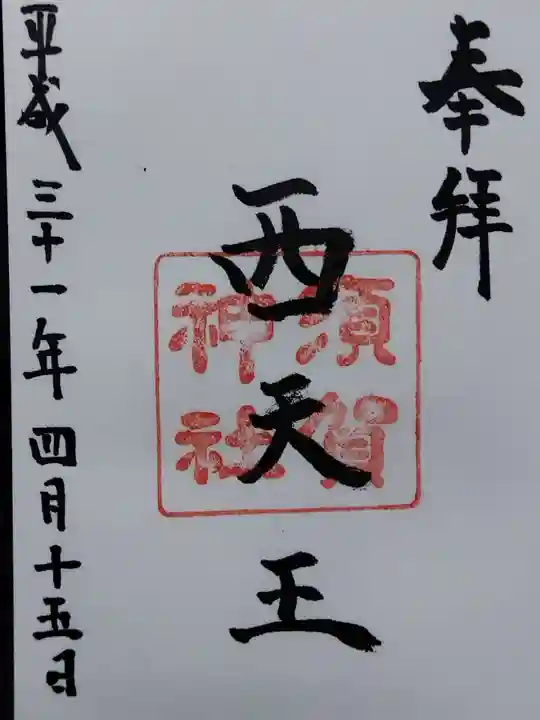 奉拝
西天王
須賀
神社
平成三十一年四月十五日